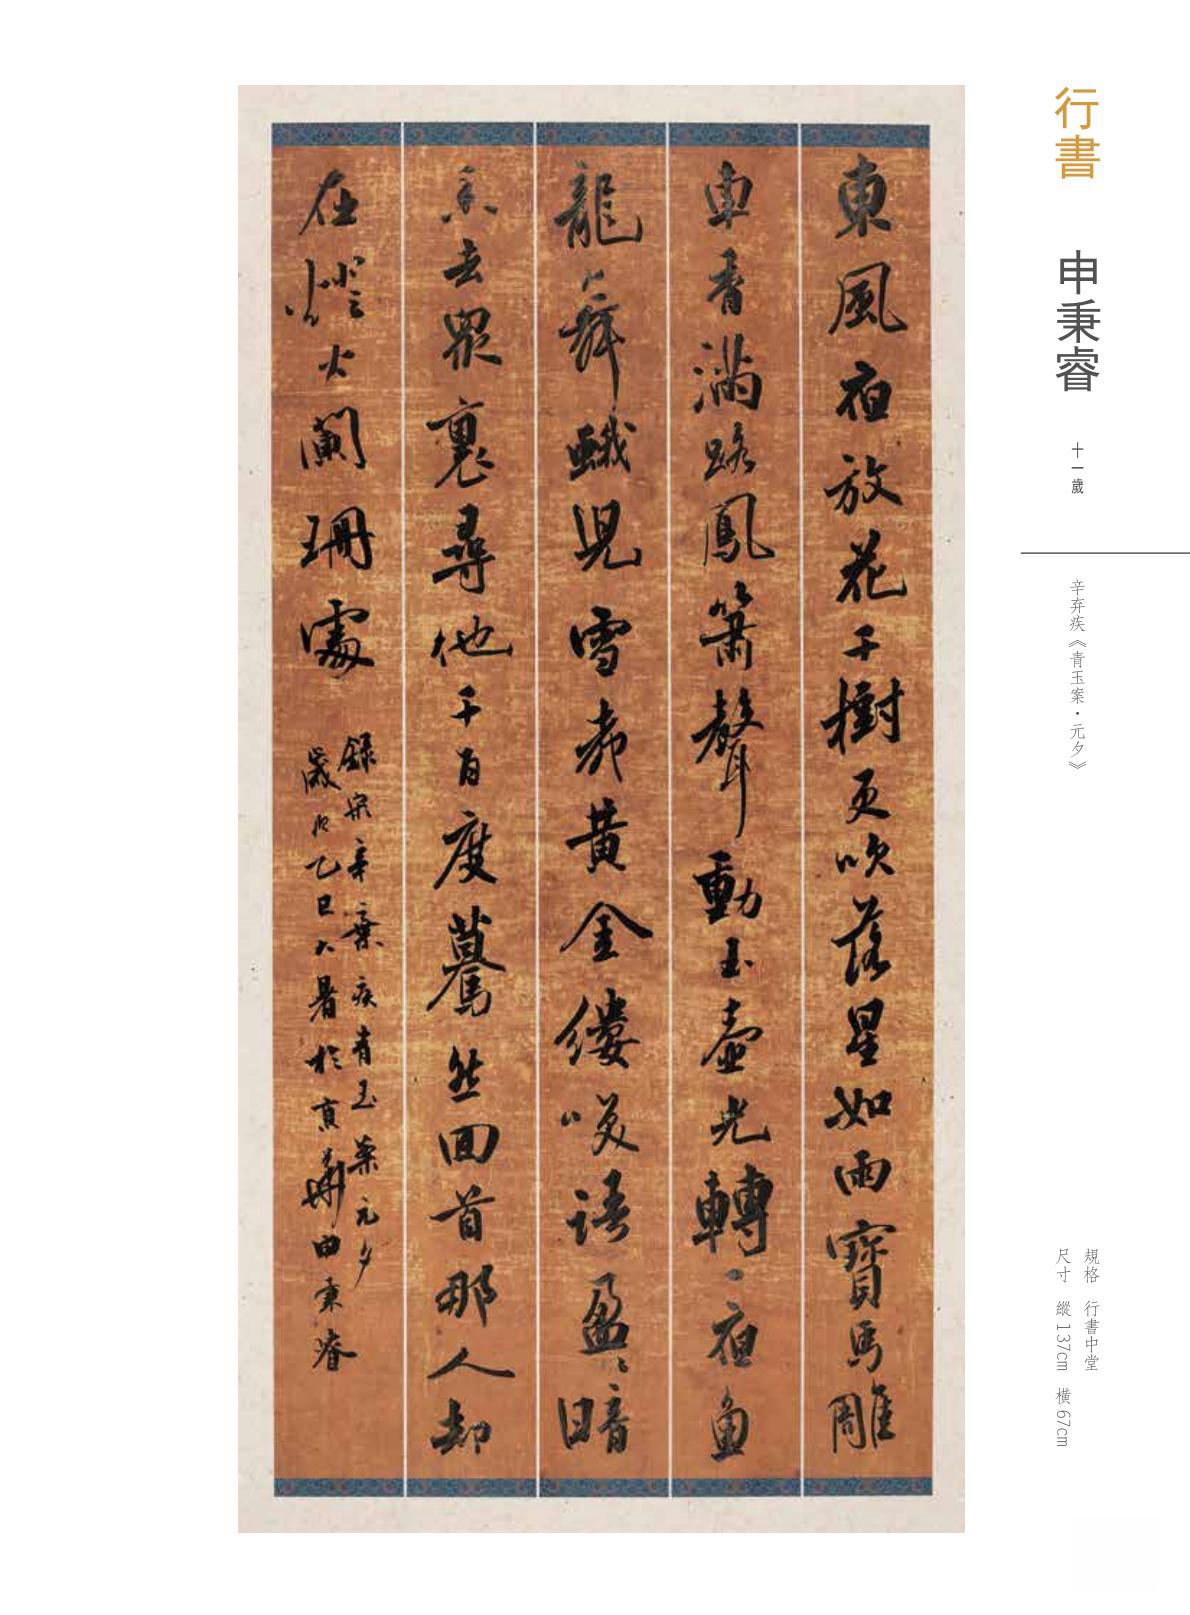 行書 申秉睿 十一歲
辛弃疾《青玉案·元夕》
規格 行書中堂
尺寸 縱137cm 橫67cm
東風夜放花千樹更吹落星如雨寶馬雕
車香滿路鳳簫聲動玉壺光轉一夜魚
龍舞蛾兒雪柳黃金縷咲語盈〻暗
香去眾裏尋他千百度驀然回首那人却
在燈火闌珊處
錄宋辛棄疾青玉案元夕
歲次乙巳大暑於京華申秉睿